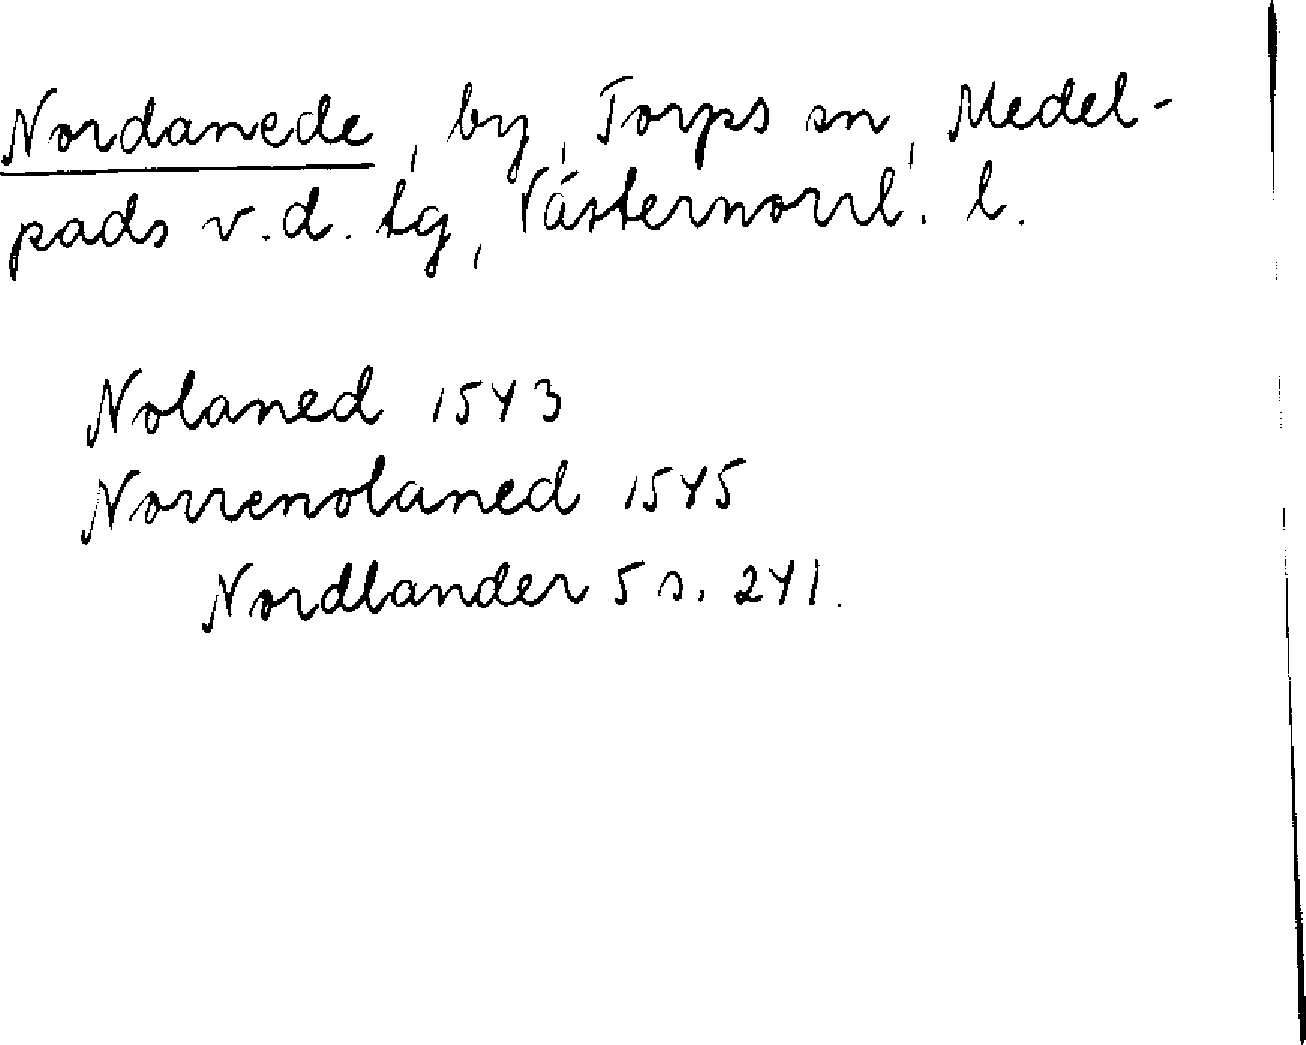 Nordanede, by, Torps sn, Medel-
pads v.d. tg, Västernorrl. l.
Nolaned 1543
Norrenolaned 1545
Nordlander 5 s. 241.